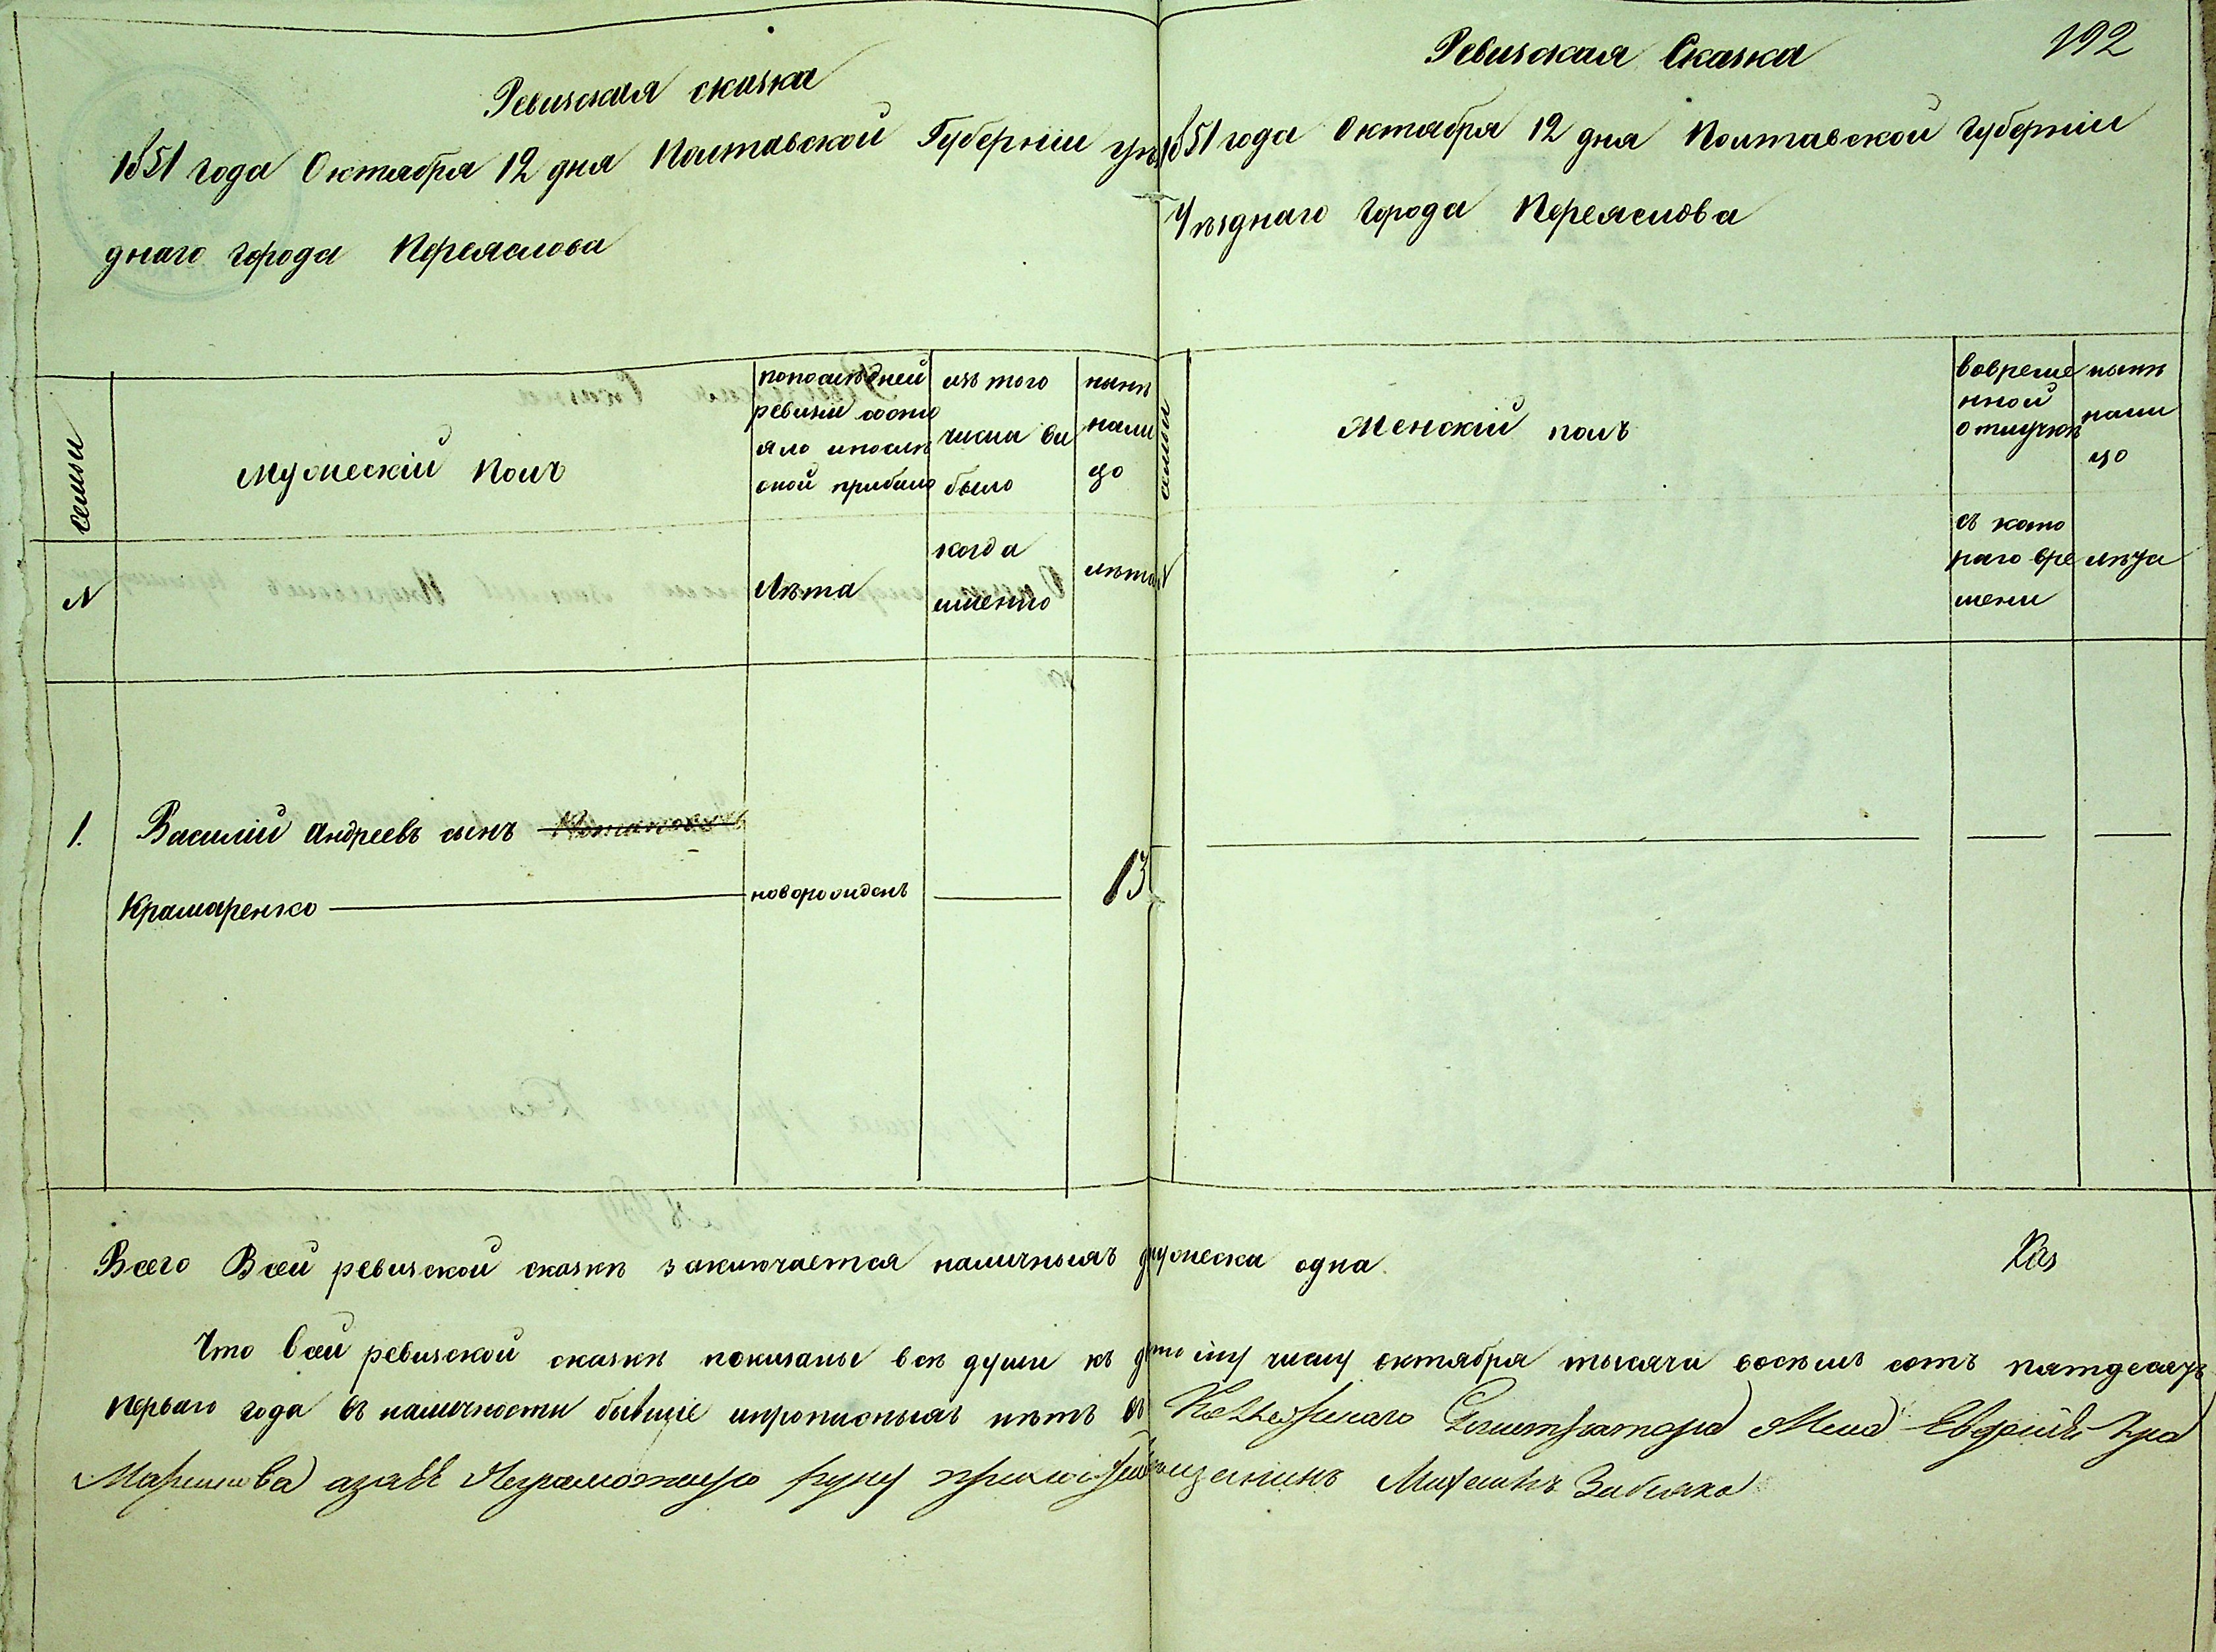 Ревизская сказка
1851 года Октября 12 дня Полтавской Губерніи уѣз
днаго города Переяслова
семьи
Мужескій полъ
попослѣдней
ревизіи состо
яло ипослѣ
оной прибыло
изъ того
числа вы
было
нынѣ
нали
цо
N
Лѣта
когда
именно
лѣта
1. Василій Андреевъ сынъ
Крамаренко новорожденъ 13
192
Ревизская Сказка
1851 года Октября 12 дня Полтавской губерніи
Уѣзднаго города Переяслова
семьи
Женскій полъ
вовреме
нной
отлучкѣ
нынѣ
нали
цо
N
съ кото
раго вре
мени
лѣта
Всего Всей ревизской сказкѣ заключается наличныхъ мужеска одна.
Что всей ревизской сказкѣ показаны всѣ души къ число октября тысяча восѣмъ сотъ пятдесятъ
перваго года въ наличности бывшіе ипропионыхъ нѣтъ въ Коллежскаго Регистратора
азаеѣ Неграмотную руку приложилъ мѣщанинъ Михаилъ Забияка